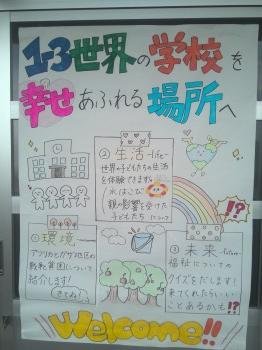 1-3世界の学校を
幸せあふれる場所へ
②生活-life-
世界の子どもたちの生活
を体験できます。
水はこび
親の影響を受けた
子どもたち について
!?
①環境
アフリカとガザ地区の
戦転貧困について
紹介します!
きてね!
③未来-future-
福祉についての
クイズをだします!
来てくれたらいい
ことあるかも
!?
Welcome!!